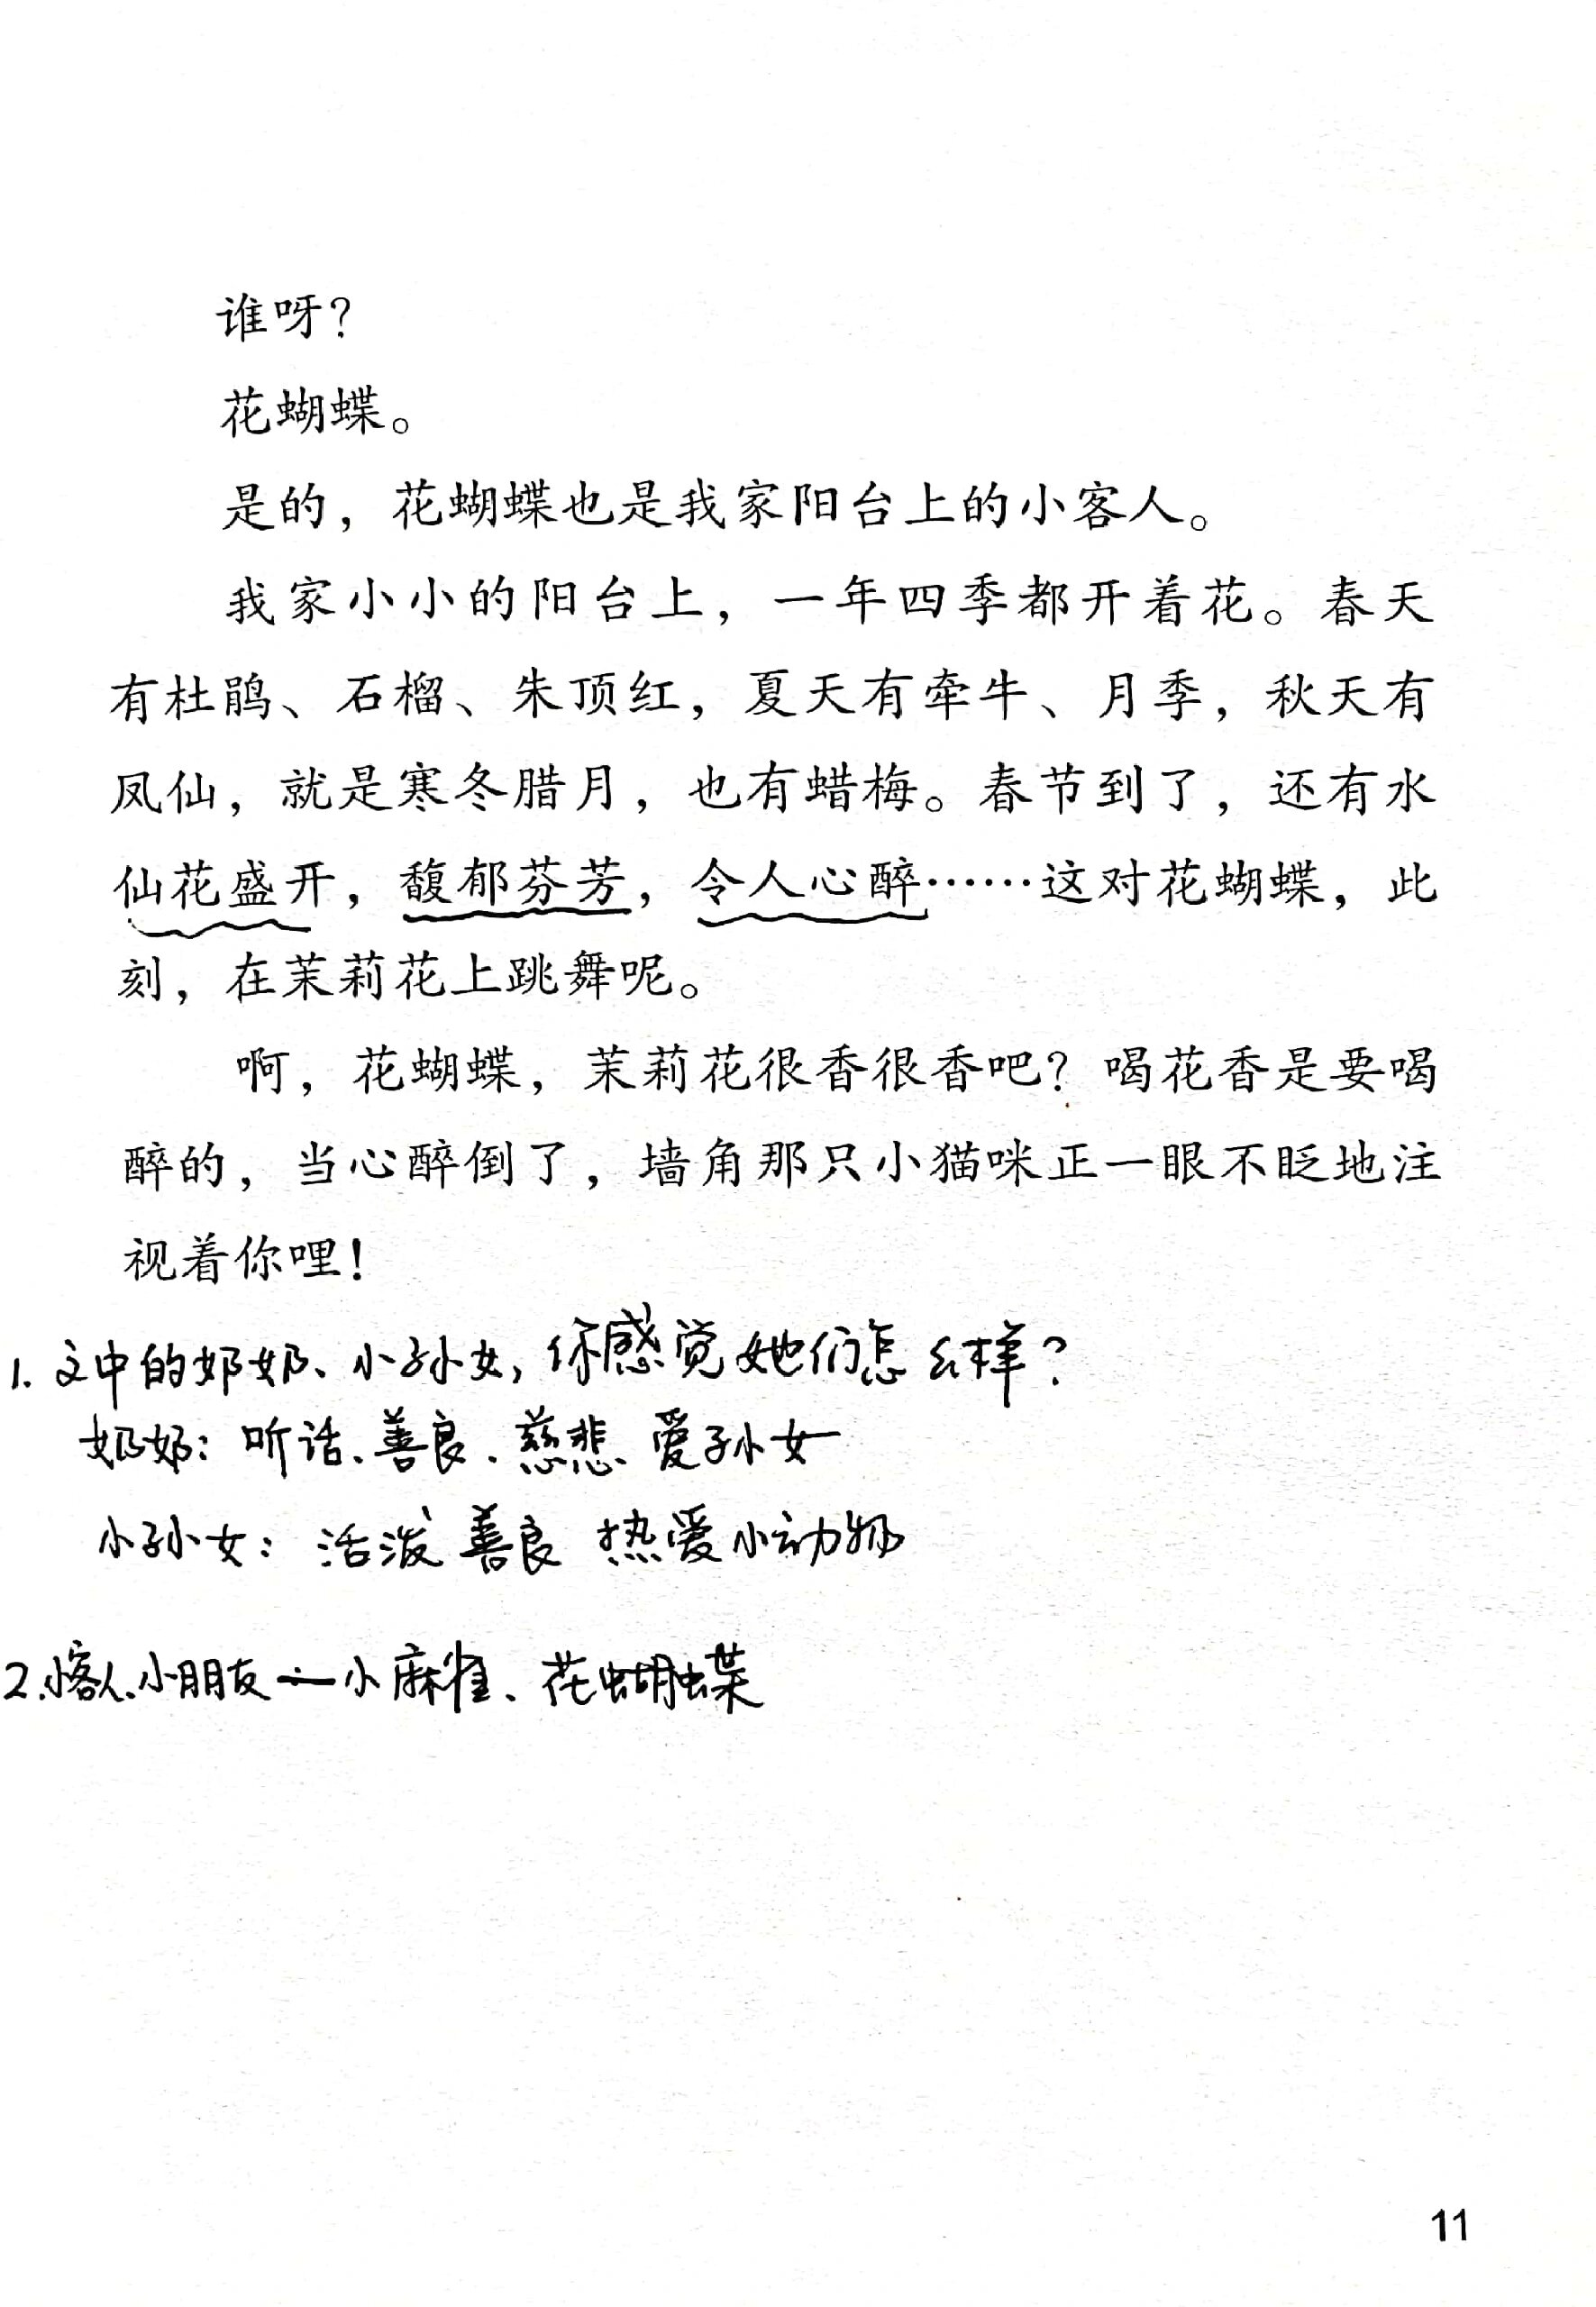 谁呀？
花蝴蝶。
是的，花蝴蝶也是我家阳台上的小客人。
我家小小的阳台上，一年四季都开着花。春天
有杜鹃、石榴、朱顶红，夏天有牵牛、月季，秋天有
凤仙，就是寒冬腊月，也有蜡梅。春节到了，还有水
仙花盛开，馥郁芬芳，令人心醉……这对花蝴蝶，此
刻，在茉莉花上跳舞呢。
啊，花蝴蝶，茉莉花很香很香吧？喝花香是要喝
醉的，当心醉倒了，墙角那只小猫咪正一眼不眨地注
视着你哩！
1. 文中的奶奶、小孙女，你感觉她们怎么样？
奶奶：听话、善良、慈悲、爱孙女
小孙女：活泼 善良 热爱小动物
2.小客人、小朋友——小麻雀、花蝴蝶
11